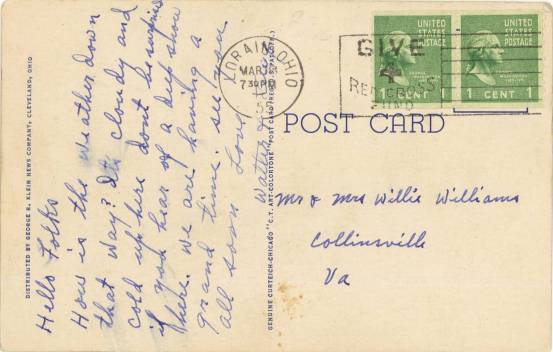 Hello Folks
How is the weather down
that way? Its cloudy and
cold up here dont be surprise
if you hear of a deep snow
here. we are having a
grand time. see you
all soon Love
Walter
DISTRIBUTED BY GEORGE R. KLEIN NEWS COMPANY, CLEVELAND, OHIO
GENUINE CURTEICH-CHICAGO "C.T. ART-COLORTONE" POST CARD (REG. U.S. PAT. OFF.)
LORAIN, OHIO
MAR
730 PM
GIVE
RED CROSS
FUND
UNITED
STATES
POSTAGE
1 CENT 1
UNITED
STATES
POSTAGE
1 CENT 1
POST CARD
Mr & Mrs Willie Williams
Collinsville
Va